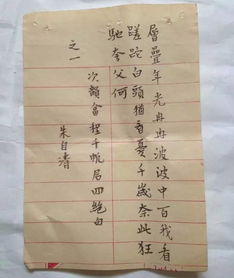 層疊年光冉冉波波中百我看
蹉跎白頭猶自憂千歲奈此狂
馳夸父何
之一
次韻會程千帆居四絕句
朱自清